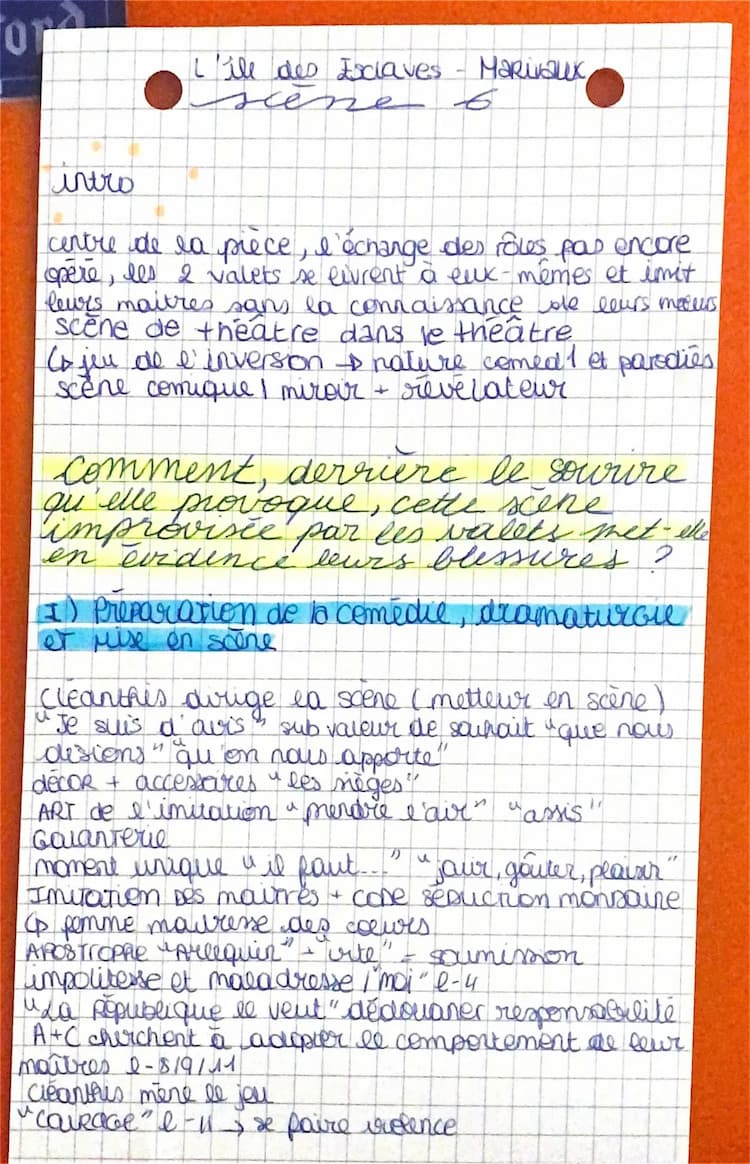 ord
L'île des Esclaves - Marivaux
scène 6
intro
centre de la pièce, l'échange des rôles pas encore
opéré, les 2 valets se livrent à eux-mêmes et imit
leurs maîtres sans la connaissance de leurs
scène de théâtre dans le théâtre
↳ jeu de l'inversion → nature comed1 et parodiés
scène comique | miroir + révélateur
Comment, derrière le sourire
qu'elle provoque, cette scène
improvisée par les valets met-elle
en évidence leurs blessures ?
I) Préparation de la comédie, dramaturgie
et mise en scène
Cléanthis dirige la scène (metteur en scène)
"Je suis d'avis" sub valeur de souhait "que nous
disions" "qu'on nous apporte"
décor + accessoires "les sièges"
ART de l'imitation "prendre l'air" "assis"
Galanterie
moment unique "il faut..." "jouir, goûter, plaisir"
Imitation des maîtres + code séduction mondaine
↳ femme maîtresse des coeurs
APOSTROPHE "Arlequin" + "vite" = soumission
impolitesse et maladresse / "moi" l-4
"La République le veut" dédouaner responsabilité
A+C cherchent à adopter le comportement de leur
maîtres l-8/9/11
Cléanthis mène le jeu
"courage" l-11 → se faire violence